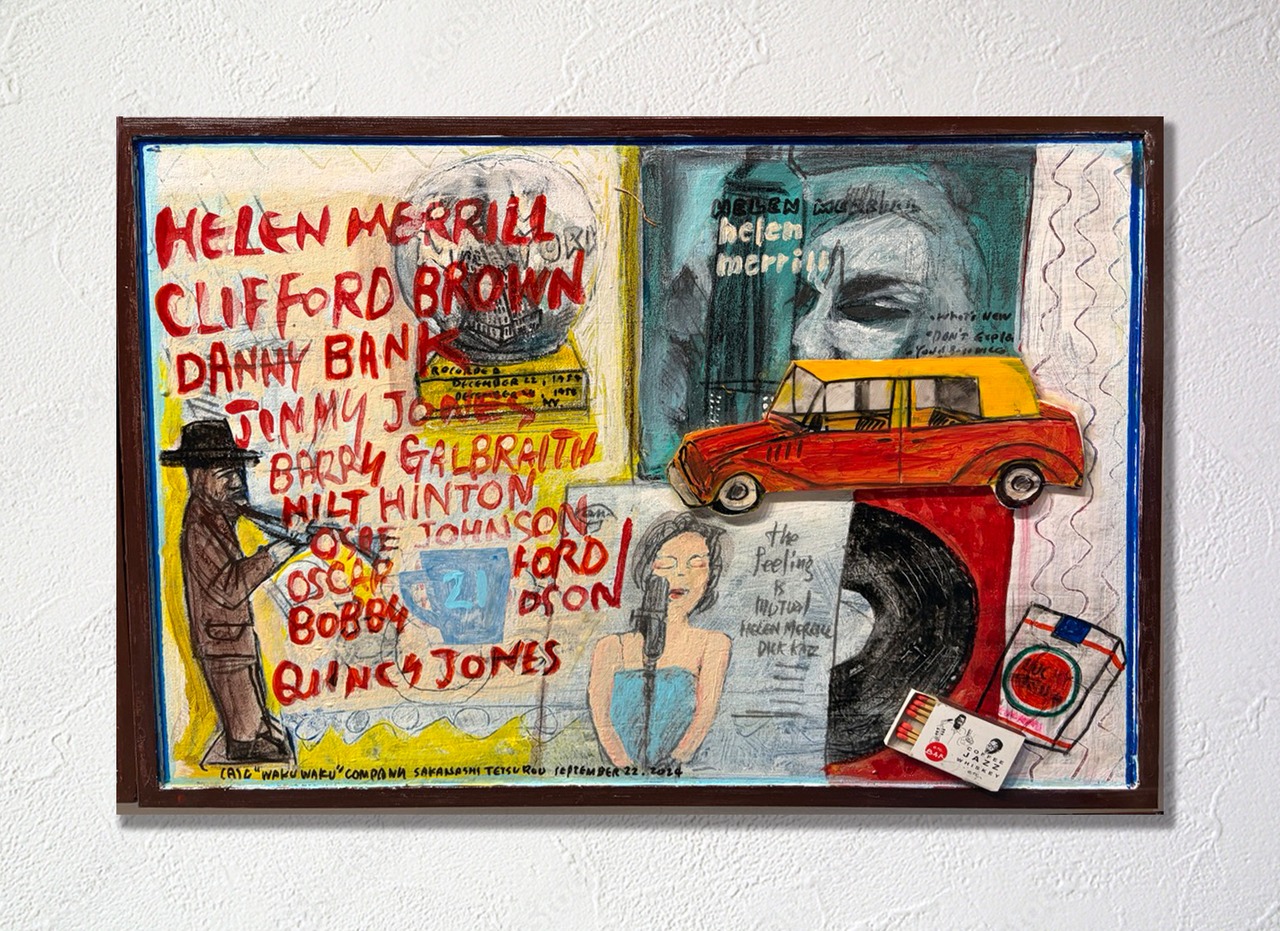 HELEN MERRILL
CLIFFORD BROWN
DANNY BANK
JIMMY JONES
BARRY GALBRAITH
MILT HINTON
OSIE JOHNSON
OSCAR
FORD
BOBBY
DSON
QUINCY JONES
21
RECORDED
DECEMBER 22, 1954
NY.
HELEN MERRILL
helen
merrill
• What's New
• DON'T Expla
the
feeling
is
MUTUAL
HELEN MERRILL
DICK KATZ
BAR
COFFEE
JAZZ
WHISKEY
(AS)G "WAKU WAKU" COMPANY SAKANASHI TETSUROU SEPTEMBER 22. 2024